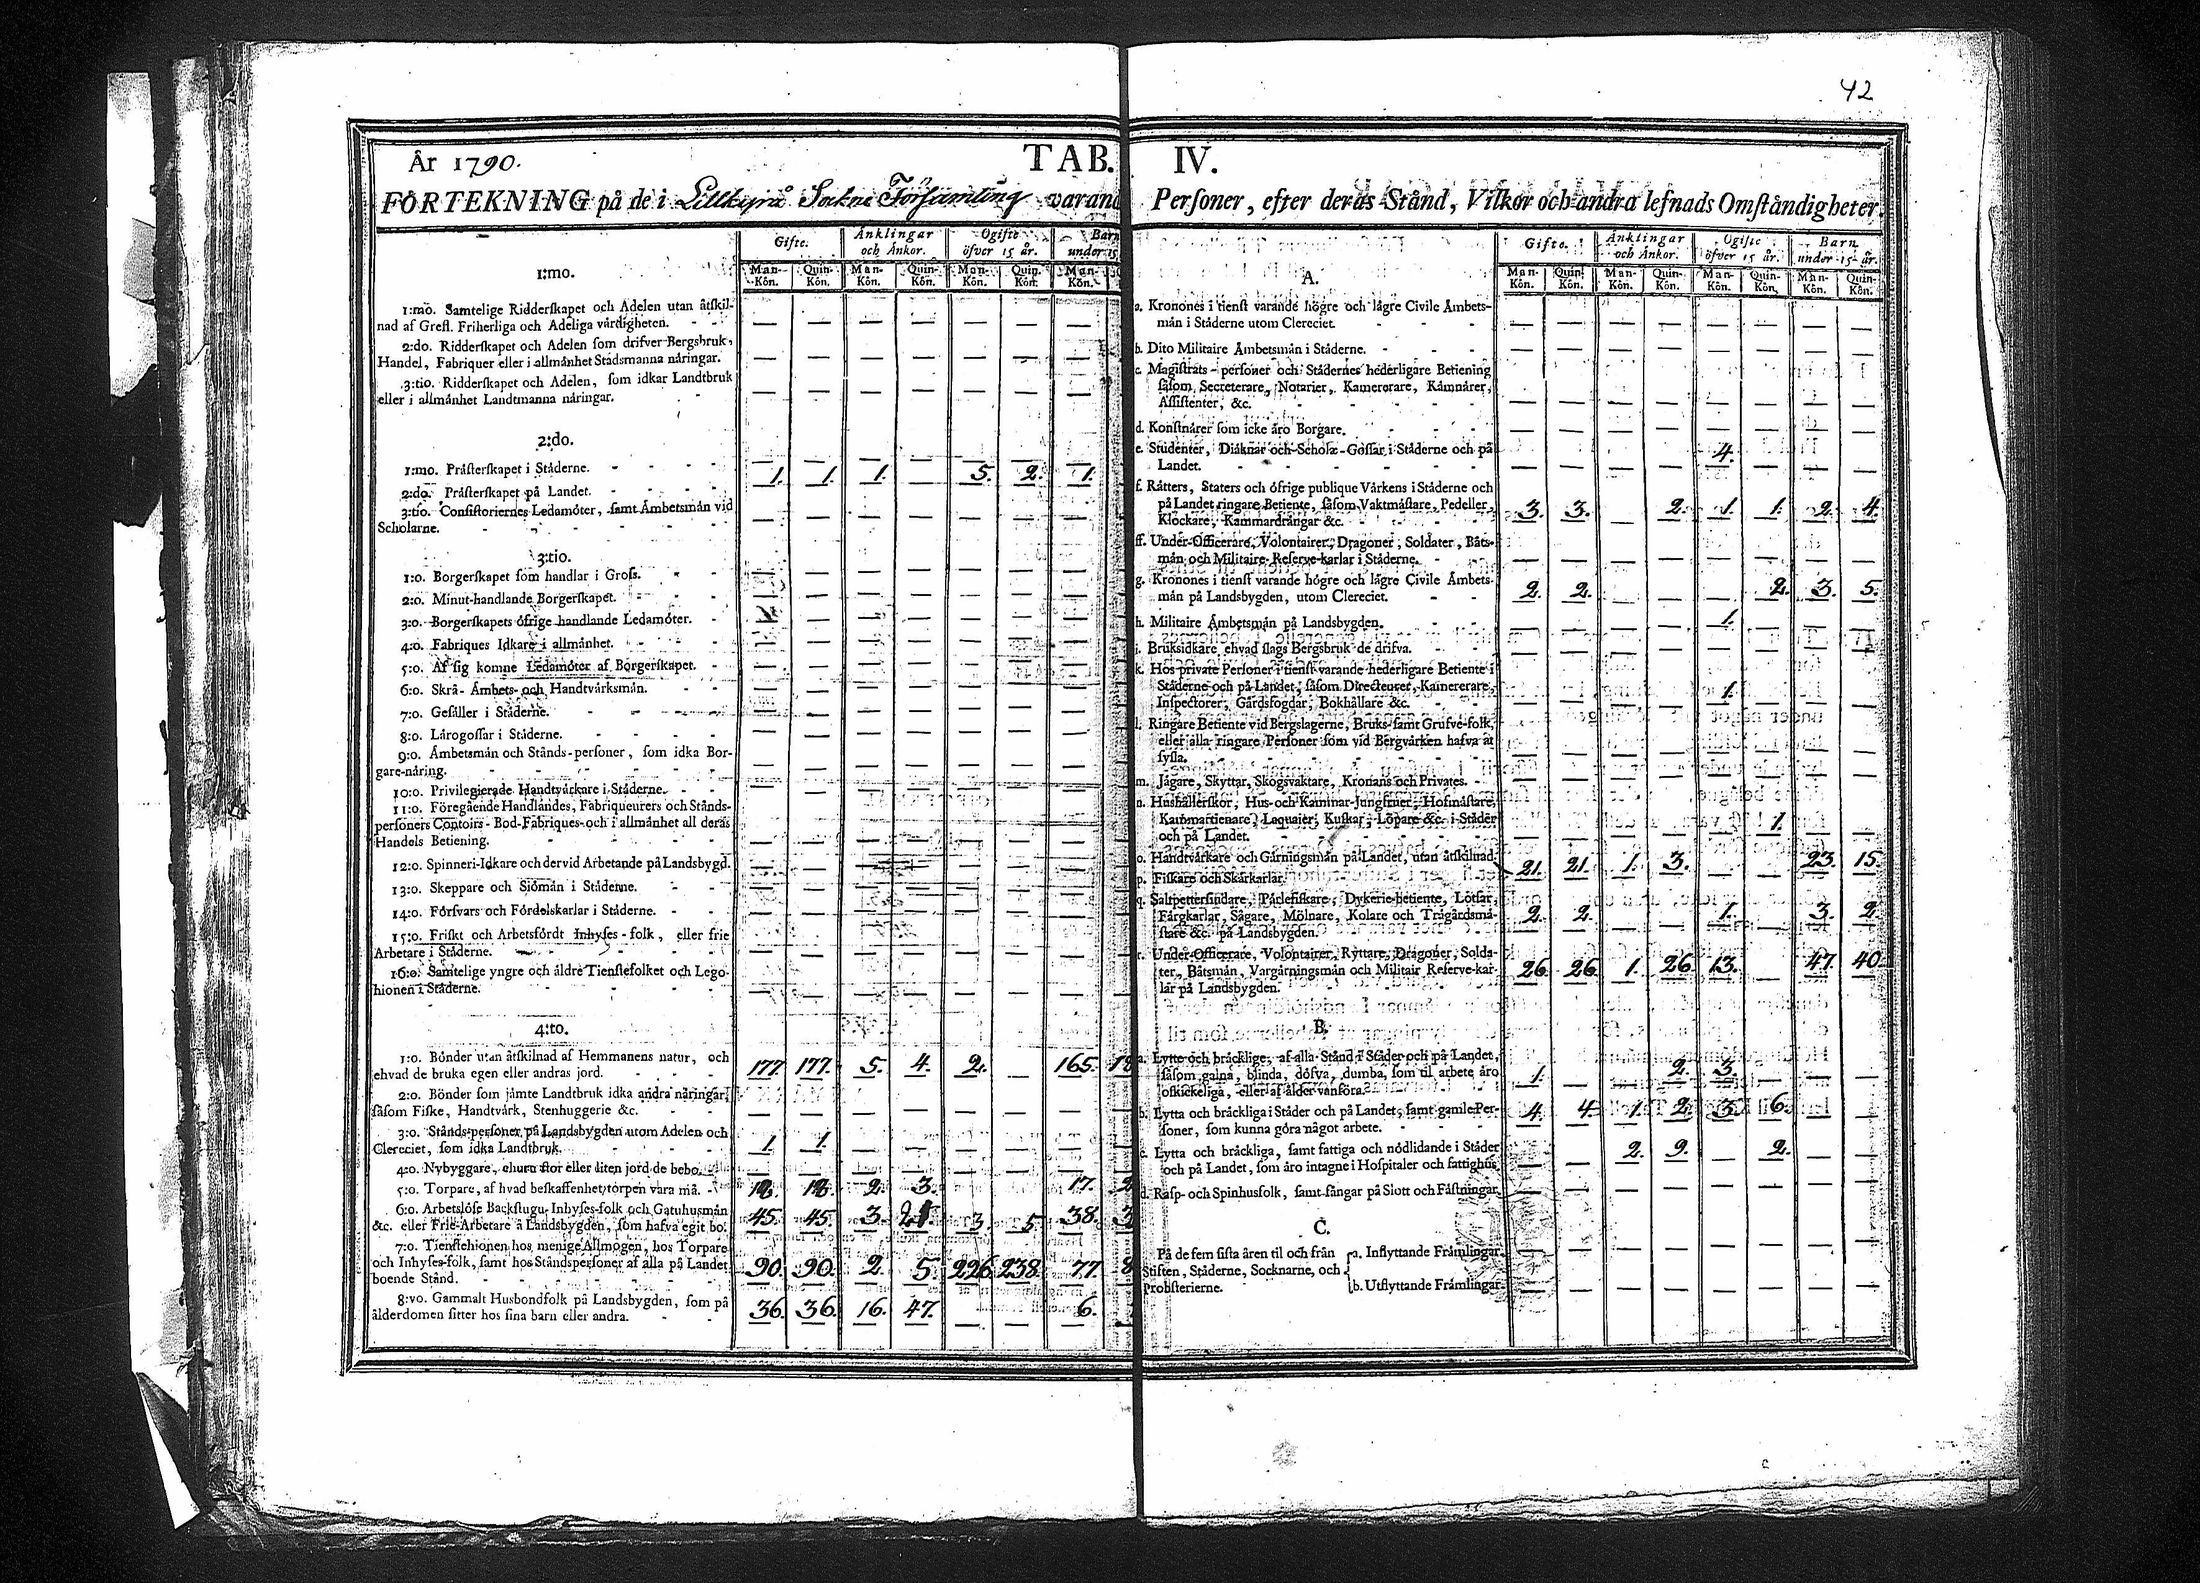 42
År 1790.
TAB. IV.
FÖRTEKNING på de i Lillkyrå Sockne Församling varand
Personer, efter deras Stånd, Vilkor och andra lefnads Omståndigheter.
Gifte. Änklingar och Änkor. Ogifte öfver 15 år. Barn under 15
Man-Kön. Quin-Kön. Man-Kön. Quin-Kön. Man-Kön. Quin-Kön. Man-Kön.
1:mo.
1:mo. Samtelige Ridderskapet och Adelen utan åtskil-
nad af Grefl. Friherliga och Adeliga vårdigheten. — — — — — — —
2:do. Ridderskapet och Adelen som drifver Bergsbruk,
Handel, Fabriquer eller i allmånhet Stadsmanna nåringar. — — — — — — —
3:tio. Ridderskapet och Adelen, som idkar Landtbruk
eller i allmånhet Landtmanna nåringar. — — — — — — —
2:do.
1:mo. Pråsterskapet i Ståderne. — — — — — — —
2:do. Pråsterskapet på Landet. 1. 1. 1. — 5. 2. 1.
3:tio. Consistoriernes Ledamöter, samt Ämbetsmån vid
Scholarne. — — — — — — —
3:tio.
1:o. Borgerskapet som handlar i Gross. — — — — — — —
2:o. Minut-handlande Borgerskapet. — — — — — — —
3:o. Borgerskapets öfrige handlande Ledamöter. — — — — — — —
4:o. Fabriques Idkare i allmånhet. — — — — — — —
5:o. Af sig komne Ledamöter af Borgerskapet. — — — — — — —
6:o. Skrå- Ämbets- och Handtvårksmån. — — — — — — —
7:o. Gesåller i Ståderne. — — — — — — —
8:o. Lårogossar i Ståderne. — — — — — — —
9:o. Ämbetsmån och Stånds-personer, som idka Bor-
gare-nåring. — — — — — — —
10:o. Privilegierade Handtvårkare i Ståderne. — — — — — — —
11:o. Föregående Handlandes, Fabriqueurers och Stånds-
personers Contoirs- Bod-Fabriques-och i allmånhet all deras
Handels Betiening. — — — — — — —
12:o. Spinneri-Idkare och dervid Arbetande på Landsbygd. — — — — — — —
13:o. Skeppare och Sjömån i Ståderne. — — — — — — —
14:o. Försvars och Fördelskarlar i Ståderne. — — — — — — —
15:o. Friskt och Arbetsfördt Inhyses-folk, eller frie
Arbetare i Ståderne. — — — — — — —
16:o. Samtelige yngre och åldre Tienstefolket och Lego-
hionen i Ståderne. — — — — — — —
4:to.
1:o. Bönder utan åtskilnad af Hemmanens natur, och
ehvad de bruka egen eller andras jord. 177. 177. 5. 4. 2. — 165. 18
2:o. Bönder som jåmte Landtbruk idka andra nåringar,
såsom Fiske, Handtvårk, Stenhuggerie &c. — — — — — — —
3:o. Stånds-personer på Landsbygden utom Adelen och
Clereciet, som idka Landtbruk. 1. 1. — — — — —
4:o. Nybyggare, ehuru stor eller liten jord de bebo. — — — — — — —
5:o. Torpare, af hvad beskaffenhet torpen vara må. 2. 3. — — 17. 2
6:o. Arbetslöse Backstugu-Inhyses-folk och Gatuhusmån
&c. eller Frie-Arbetare å Landsbygden, som hafva egit bo. 45. 45. 3. 3. 5. 38. 3
7:o. Tienstehionen hos menige Allmogen, hos Torpare
och Inhyses-folk, samt hos Ståndspersoner af alla på Landet
boende Stånd. 90. 90. 2. 5. 226. 238. 77. 8
8:vo. Gammalt Husbondfolk på Landsbygden, som på
ålderdomen sitter hos sina barn eller andra. 36. 36. 16. 47. — — 6.
Gifte. Änklingar och Änkor. Ogifte öfver 15 år. Barn under 15 år.
Man-Kön. Quin-Kön. Man-Kön. Quin-Kön. Man-Kön. Quin-Kön. Man-Kön. Quin-Kön.
A.
a. Kronones i tienst varande högre och lågre Civile Ämbets-
mån i Ståderne utom Clereciet. — — — — — — — —
b. Dito Militaire Ämbetsmån i Ståderne. — — — — — — — —
c. Magistrats-personer och Stådernes hederligare Betiening
såsom Secreterare, Notarier, Kamererare, Kåmnårer,
Assistenter, &c. — — — — — — — —
d. Konstnårer som icke åro Borgare. — — — — — — — —
e. Studenter, Diåknar och Scholæ-Gossar i Ståderne och på
Landet. — — — — 4. — — —
f. Råtters, Staters och öfrige publique Vårkens i Ståderne och
på Landet ringare Betiente, såsom Vaktmåstare, Pedeller,
Klockare, Kammardrångar &c. 3. 3. — 2. 1. 1. 2. 4.
ff. Under-Officerare, Volontairer, Dragoner, Soldater, Båts-
mån och Militaire Reserve-karlar i Ståderne. — — — — — — — —
g. Kronones i tienst varande högre och lågre Civile Ämbets-
mån på Landsbygden, utom Clereciet. 2. 2. — — — 2. 3. 5.
h. Militaire Ämbetsmån på Landsbygden. — — — — 1. — — —
i. Bruksidkare ehvad slags Bergsbruk de drifva. — — — — — — — —
k. Hos private Personer i tienst varande hederligare Betiente i
Ståderne och på Landet, såsom Directeurer, Kamererare,
Inspectorer, Gårdsfogdar, Bokhållare &c. — — — — 1. — — —
l. Ringare Betiente vid Bergslagerne, Bruks-samt Grufve-folk,
eller alla ringare Personer som vid Bergvårken hafva at
sysla. — — — — — — — —
m. Jågare, Skyttar, Skogsvaktare, Kronans och Privates. — — — — — — — —
n. Hushållerskor, Hus-och Kammar-Jungfruer, Hofmåstare,
Kammartienare, Laquaier, Kuskar, Löpare &c. i Ståder
och på Landet. — — — — — 1. — —
o. Handtvårkare och Gårningsmån på Landet, utan åtskilnad. 21. 21. 1. 3. — — 23. 15.
p. Fiskare och Skårkarlar. — — — — — — — —
q. Saltpettersiudare, Pårlefiskare, Dykerie-betiente, Lotsar,
Fårgkarlar, Sågare, Mölnare, Kolare och Trågårdsmå-
stare &c. på Landsbygden. 2. 2. — — 1. — 3. 2.
r. Under-Officerare, Volontairer, Ryttare, Dragoner, Solda-
ter, Båtsmån, Vargårningsmån och Militair Reserve-kar-
lar på Landsbygden. 26. 26. 1. 26. 13. — 47. 40.
B.
a. Lytte och bråcklige, af alla Stånd i Ståder och på Landet,
såsom galna, blinda, döfva, dumba, som til arbete åro
oskickeliga, eller af ålder vanföra. 1. — — 2. 3. — — —
b. Lytta och bråckliga i Ståder och på Landet, samt gamle Per-
soner, som kunna göra något arbete. 4. 4. 1. 2. 3. 6. — —
c. Lytta och bråckliga, samt fattiga och nödlidande i Ståder
och på Landet, som åro intagne i Hospitaler och fattighus. — — 2. 9. — 2. — —
d. Rasp- och Spinhusfolk, samt fångar på Slott och Fåstningar. — — — — — — — —
C.
På de fem sista åren til och från
Stiften, Ståderne, Socknarne, och
Probsterierne.
a. Inflyttande Fråmlingar. — — — — — — — —
b. Utflyttande Fråmlingar. — — — — — — — —